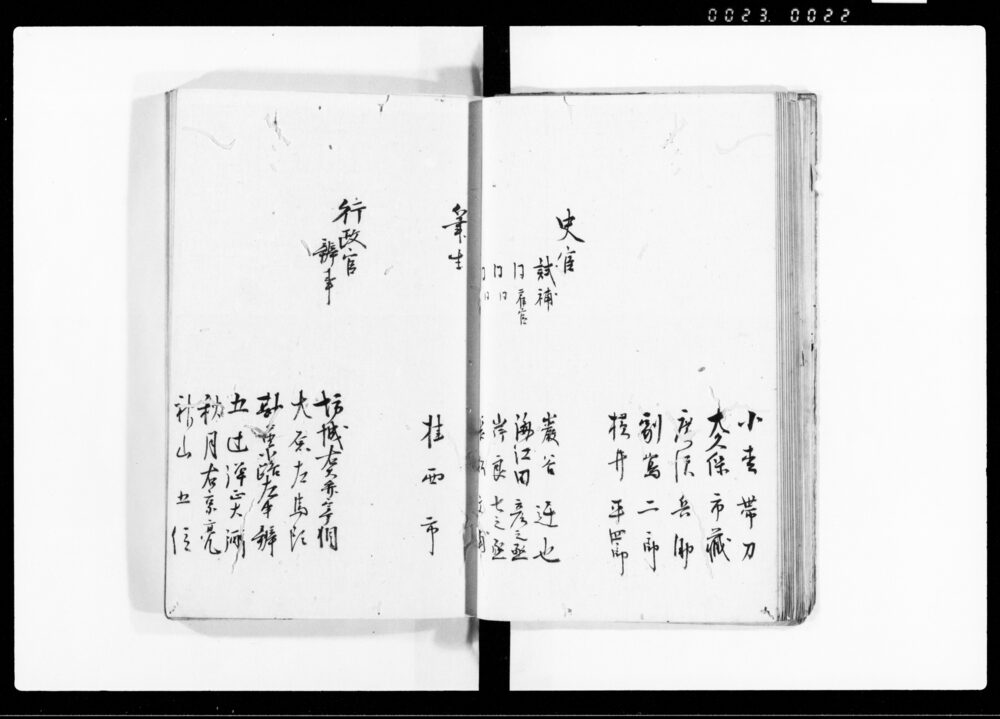 0023. 0022
小松帯刀
大久保市蔵
広沢兵助
副島二郎
横井平四郎
史官
試補
巌谷迂也
同 雇官
海江田彦之丞
同 同
岸良七之丞
同 同
筆生
桂西市
行政官
辨事
坊城右大弁宰相
大原左馬頭
勘解由小路左中辨
五辻弾正大弼
秋月右京亮
神山五位